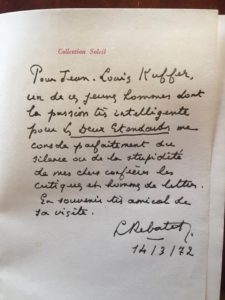 Collection Soleil
Pour Jean-Louis Kuffer,
un de ces jeunes hommes dont
la passion très intelligente
pour les Deux Etendards me
console parfaitement du
silence ou de la stupidité
de mes chers confrères les
critiques et hommes de lettres.
En souvenir très amical de
sa visite.
L Rebatet
14/3/72